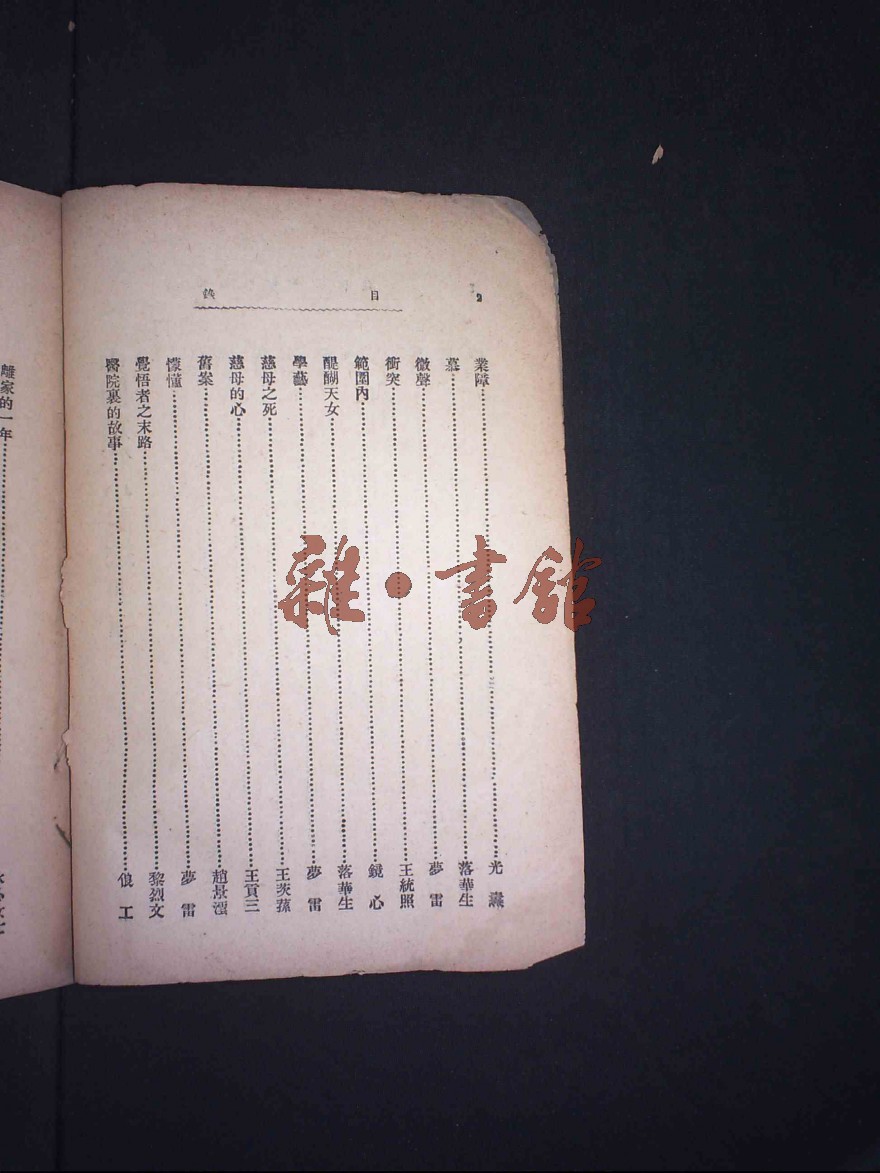 2
目錄
業障 光
慕 落華生
微聲 夢雷
衝突 王統照
範圍內 鏡心
醍醐天女 落華生
學藝 夢雷
慈母之死 王茨蓀
慈母的心 王貢三
舊案 趙景澐
懞懂 夢雷
覺悟者之末路 黎烈文
醫院裏的故事 俍工
離家的一年
雜•書館